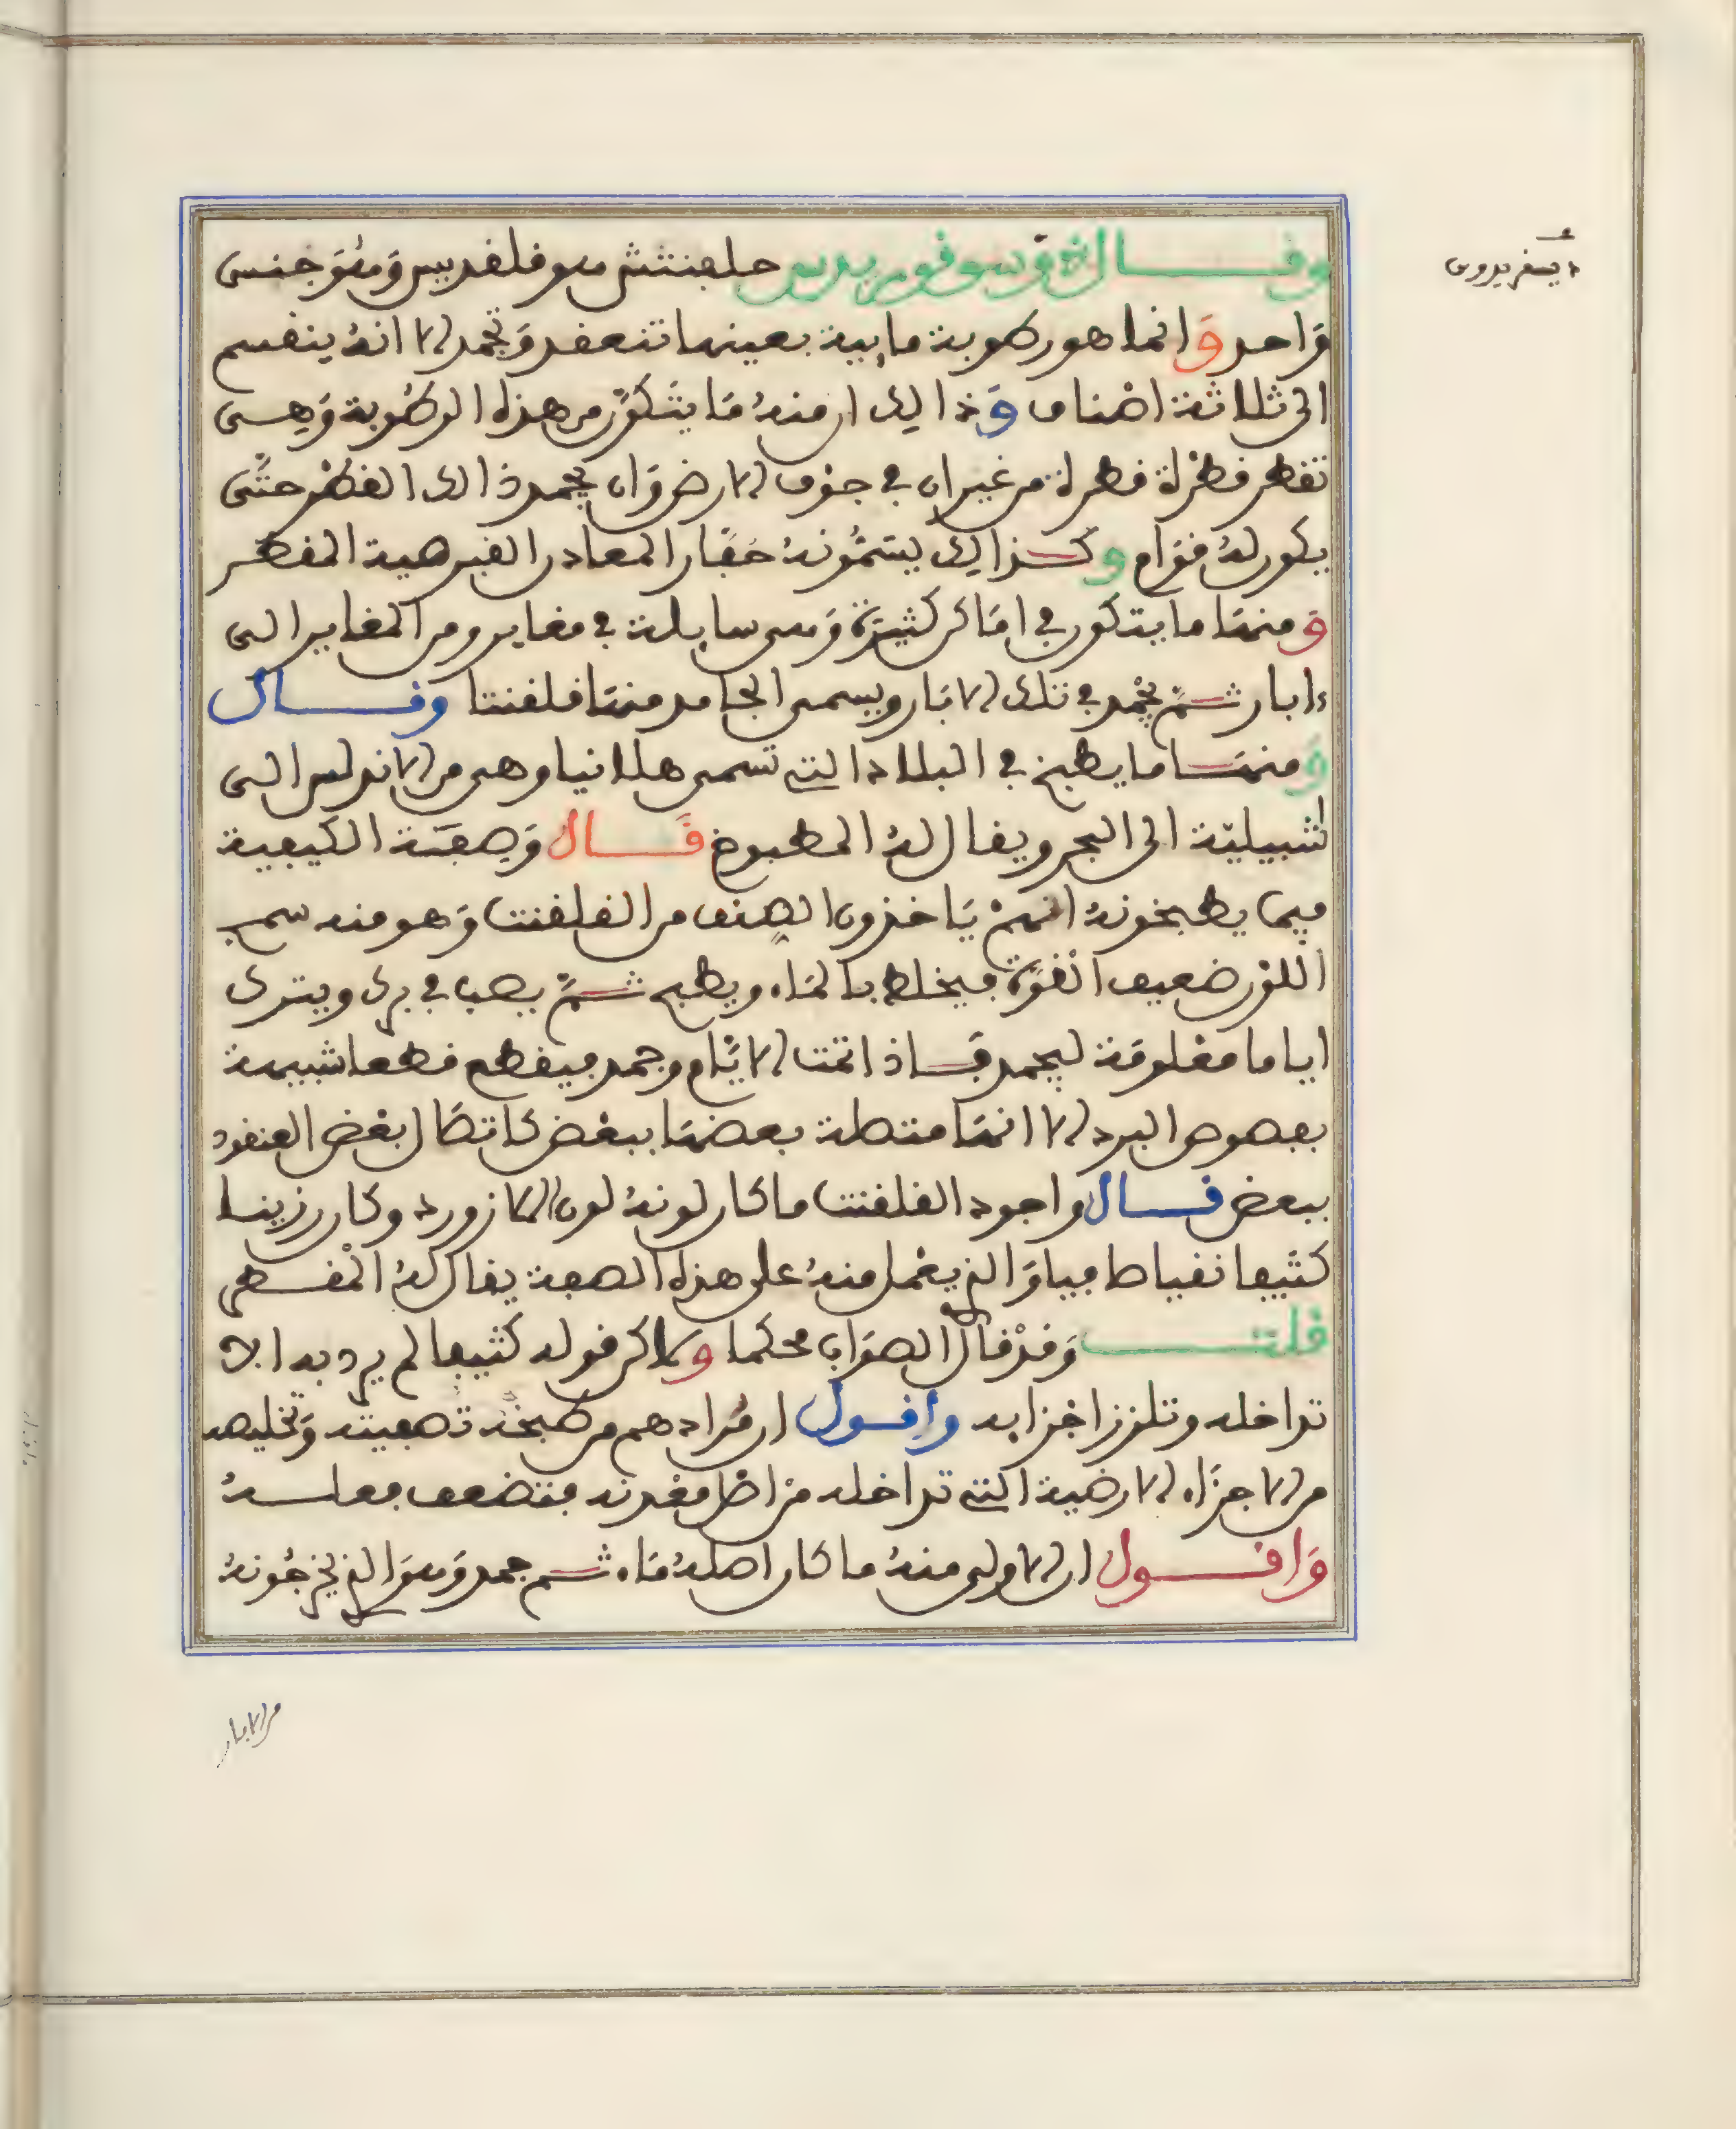 وفال ذوسوفوريدس حلفنتش هو فلفديس وهو جنس
واحد وانما هو رطوبة مايية بعينها تنعفد وتجمد الا انه ينفسم
الى ثلاثة اصناف وذالك ان منه ما يتكون من هذه الرطوبة وهى
تفطر فطرة فطرة من غيران في جوف الارض وان يجمد ذالك الفطر حتى
يكون له فوام وكذالك يسمونه حفار المعادن الفبرصية المفطر
ومنها ما يتكون في اماكن كثيرة وهى سايلة في مغاير ومن المغاير الى
ءابار ثم يجمد في تلك الابار ويسمى الجامد منها فلفنتا وفال
ومنها ما يطبخ في البلاد التي تسمى هلانيا وهى من الاندلس الى
اشبيلية الى البحر ويفال له المطبوخ فال وصفة الكيفية
فيما يطبخونه انهم ياخذون الصنف من الفلفنت وهو منه سمج
اللون ضعيف القوة فيخلط بالماء ويطبخ ثم يصب في برك ويترك
اياما معلومة ليجمد فاذا تمت الايام وجمد فيفطع فطعا شبيهة
بفصوص النرد الا انها متصلة بعضها ببعض كاتصال بعض العنفود
ببعض فال واجود الفلفنت ما كان لونه لون اللازورد وكان رزينا
كثيفا نفيا صافيا والذي يعمل منه على هذه الصفة يفال له المفسطى
فلت وفد فال الصواب محكما ولاكن فوله كثيفا لم يرد به الا
تداخله وتلزز اجزايه وافول ان مرادهم من طبخه تصفيته وتخليصه
من الاجزاء الارضية التي تداخله من اصل معدنه فتضعف فعله
وافول ان الاولى منه ما كان اصله ماء ثم جمد وهو الذي يخرجونه
من الابار